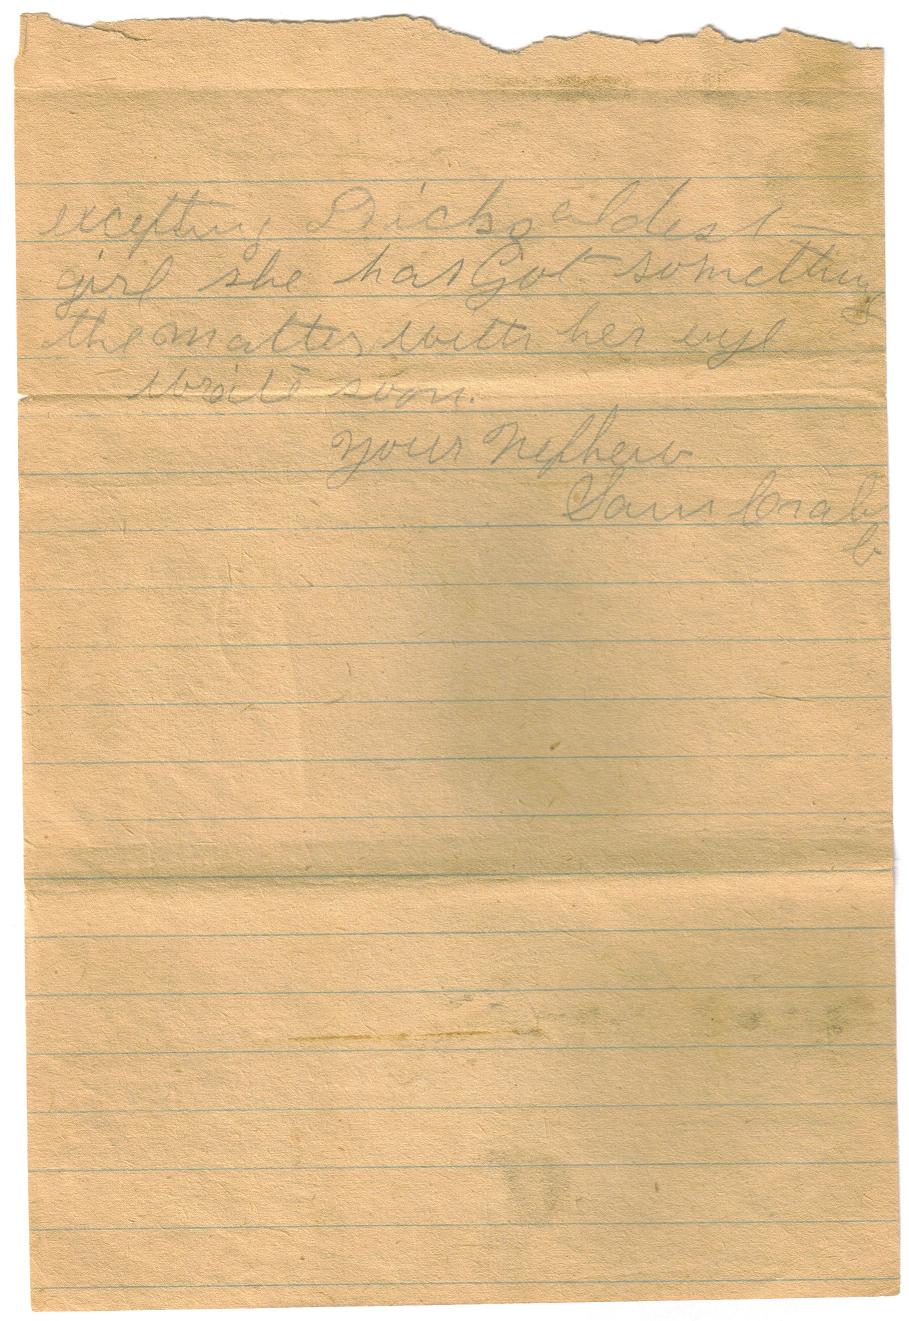 excepting Dicks oildest
girl she has Got something
the matter with her eye
write soon.
your Nephew
Sam Crab
b